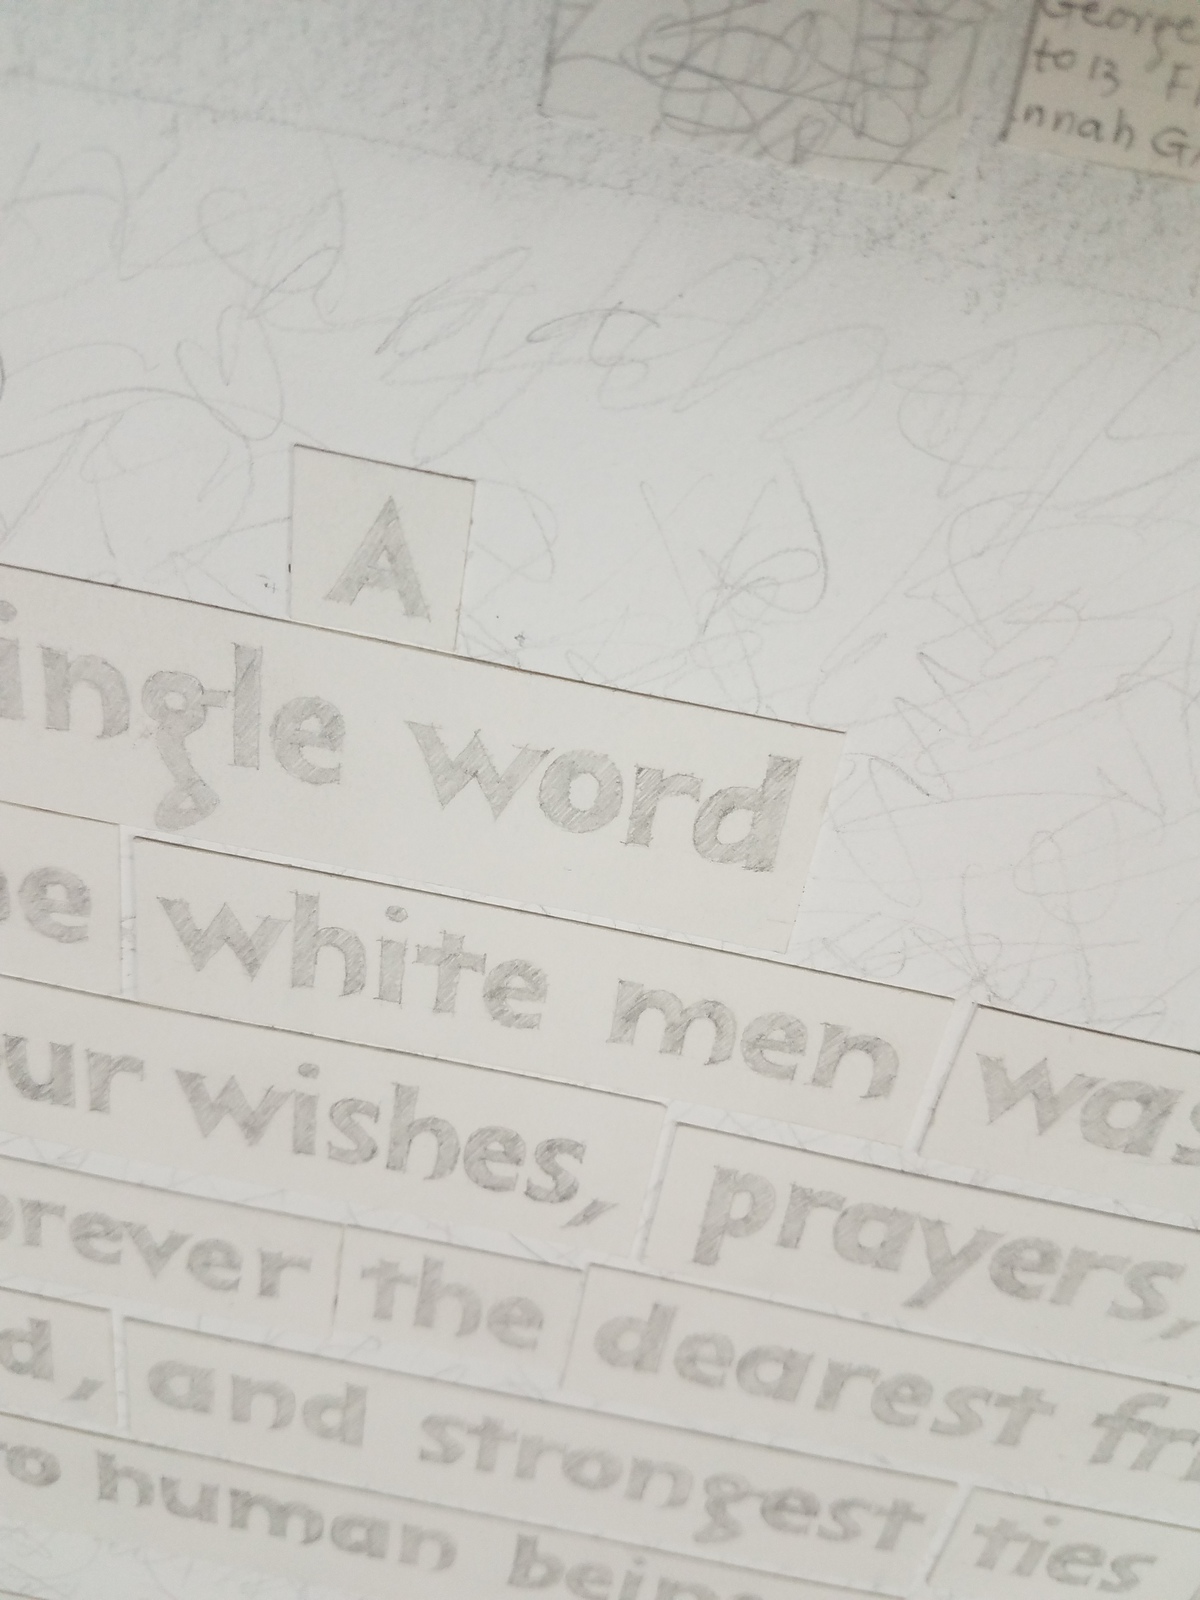 George
to 13 F
nnah G
A
ingle word
be white men was
our wishes, prayers,
orever the dearest fri
d, and strongest ties
to human being